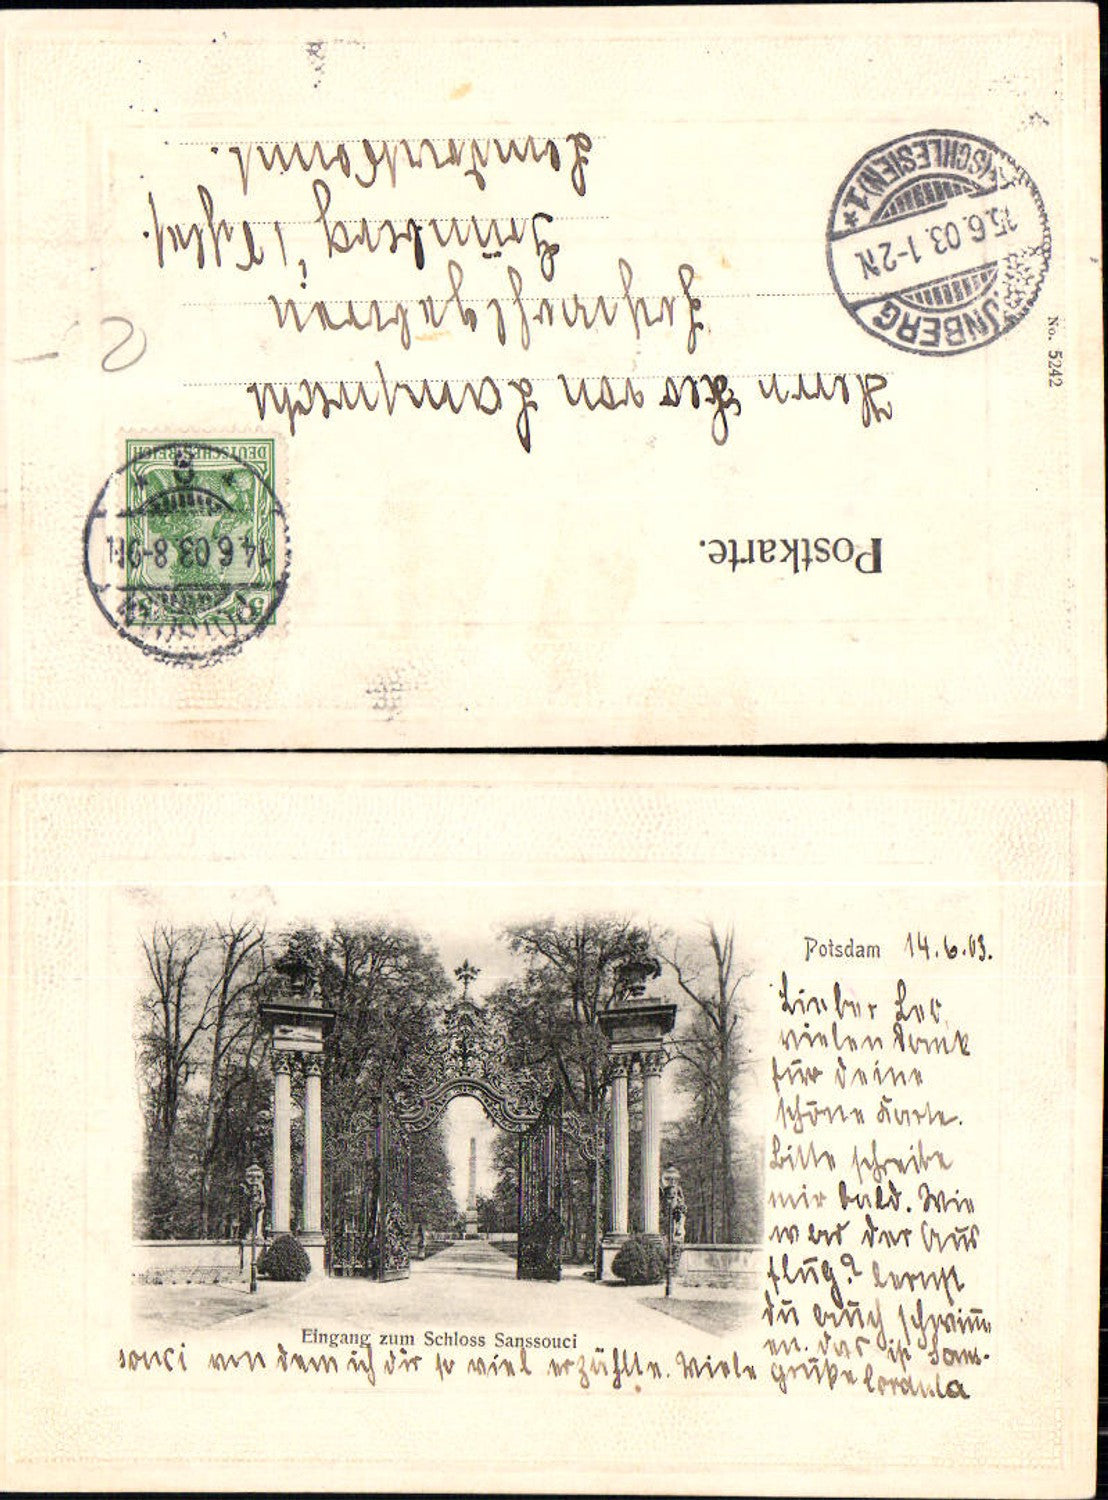 Postkarte.
Herrn Leo von Lamprecht
Hochwohlgeboren
Grünberg i/Schles.
Landratsamt.
DEUTSCHES REICH
5
POTSDAM
14.6.03.8-9N.
* 8 *
GRÜNBERG
15.6.03.1-2N.
(SCHLESIEN) 1 *
No. 5242
Potsdam 14.6.03.
Lieber Leo,
vielen Dank
für deine
schöne Karte.
Bitte schreibe
mir bald. Wie
war der Aus
flug? Lernst
du auch schwimm̄
en. das ist Sans-
souci von dem ich dir so viel erzählte. Viele Grüße Cordula
Eingang zum Schloss Sanssouci